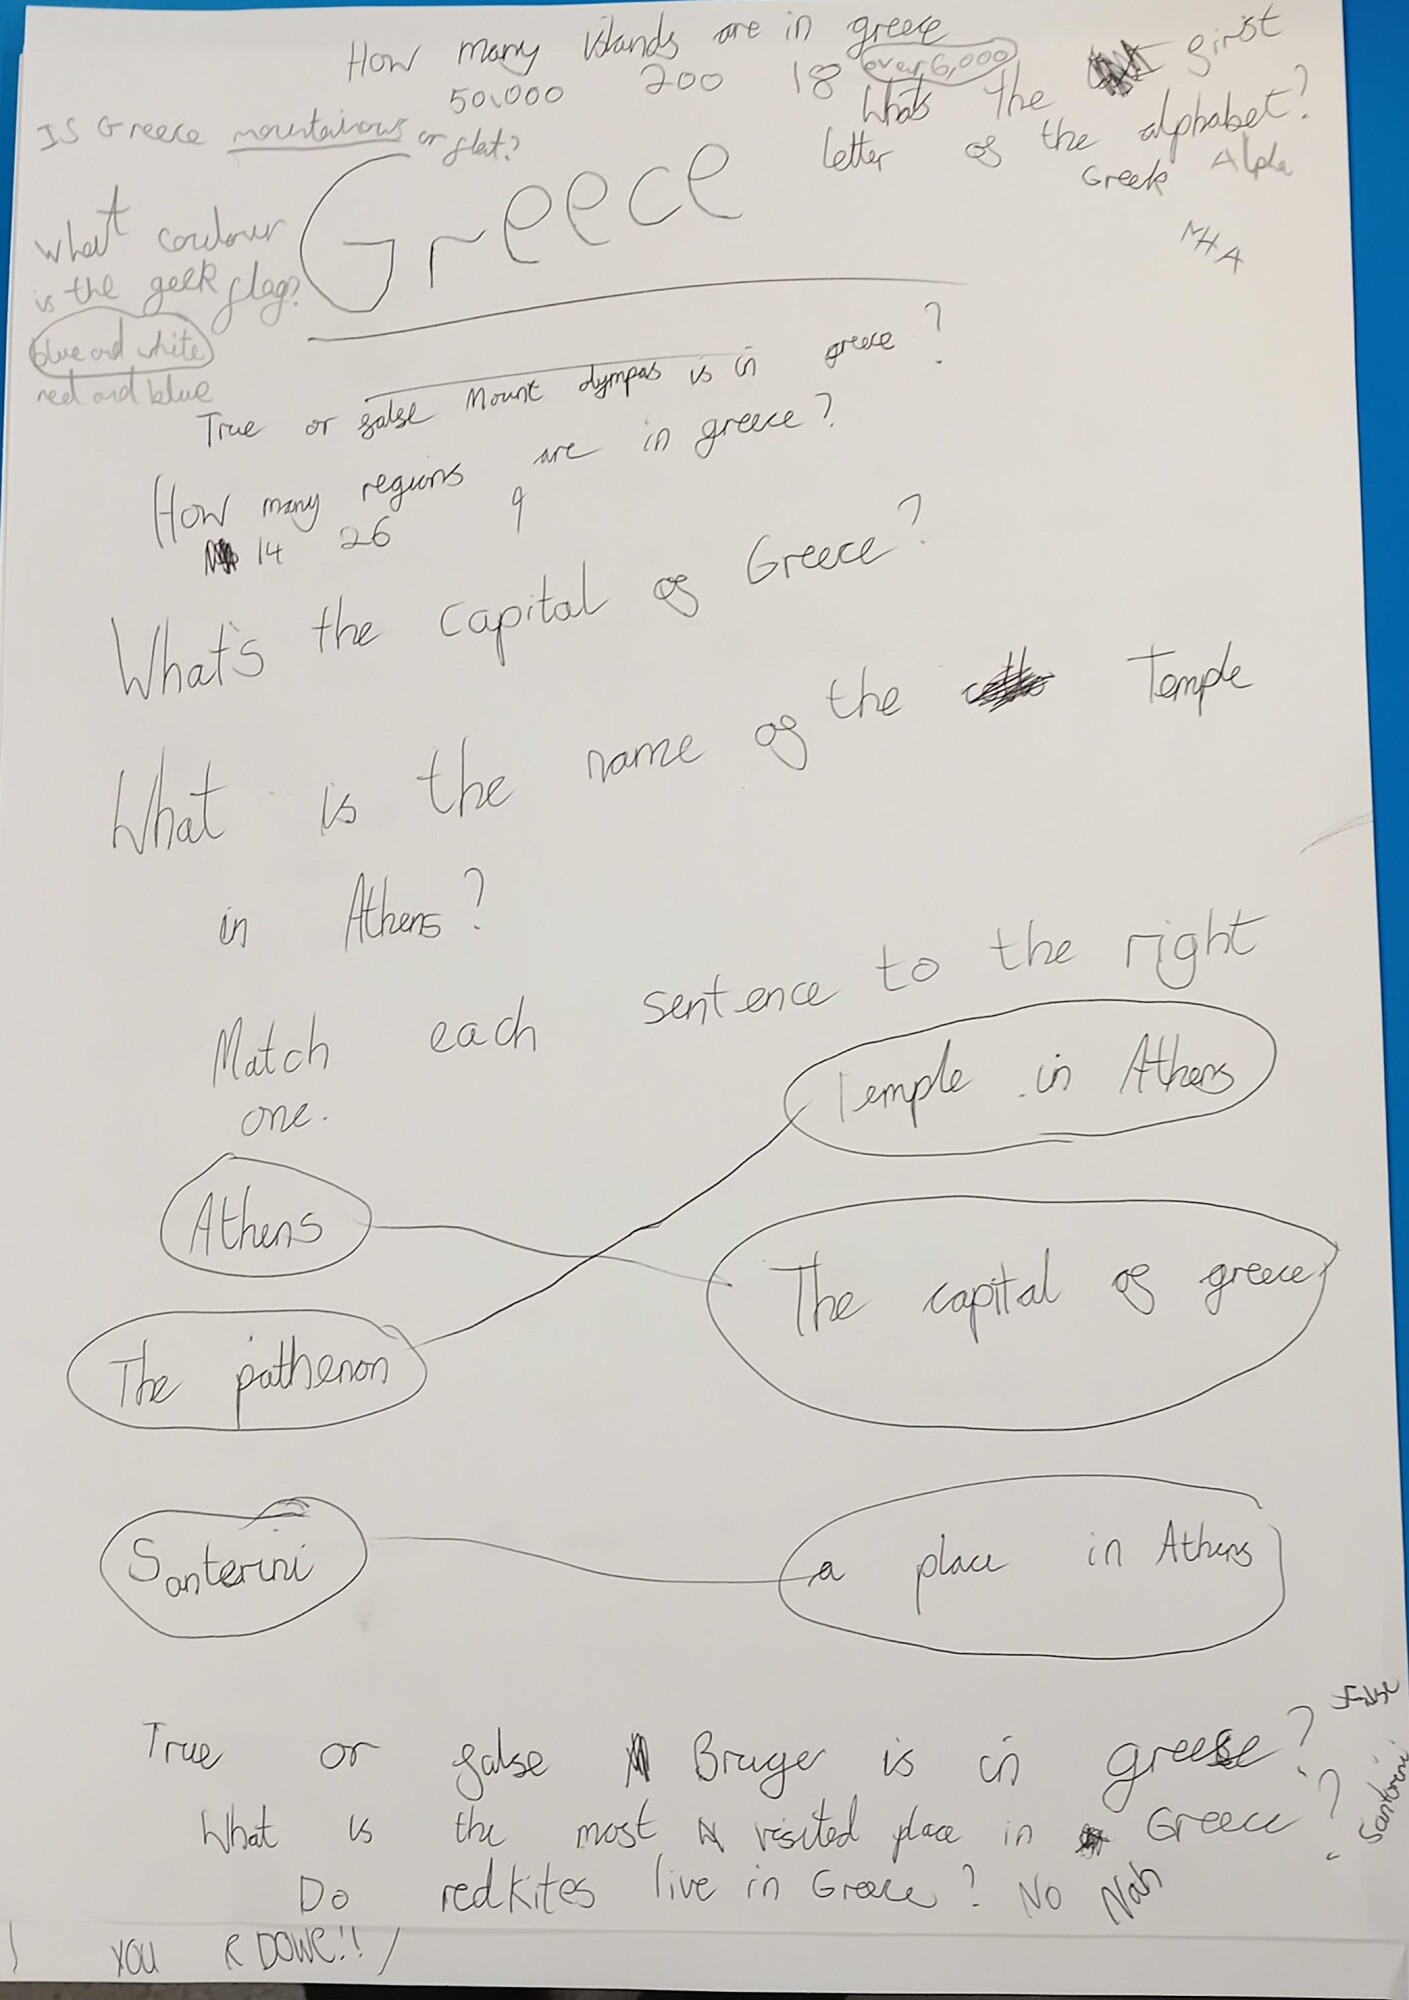 How many islands are in greece
50,000 200 18 over 6,000
Whats the girst
letter og the alphabet?
Greek Alpha
IS Greece mountainous or glat?
Greece
What coulour
is the geek glag?
blue and white
red and blue
True or galse Mount olympas is in greece?
How many regions are in greece?
14 26 9
What's the capital og Greece?
What is the name og the Temple
in Athens?
Match each sentence to the right
one.
Temple in Athens
Athens
The capital og greece
The pathenon
Santerini
a place in Athens
True or galse Bruger is in greese?
What is the most visited place in Greece?
Santorini
Do redkites live in Greece? No Nah
YOU R